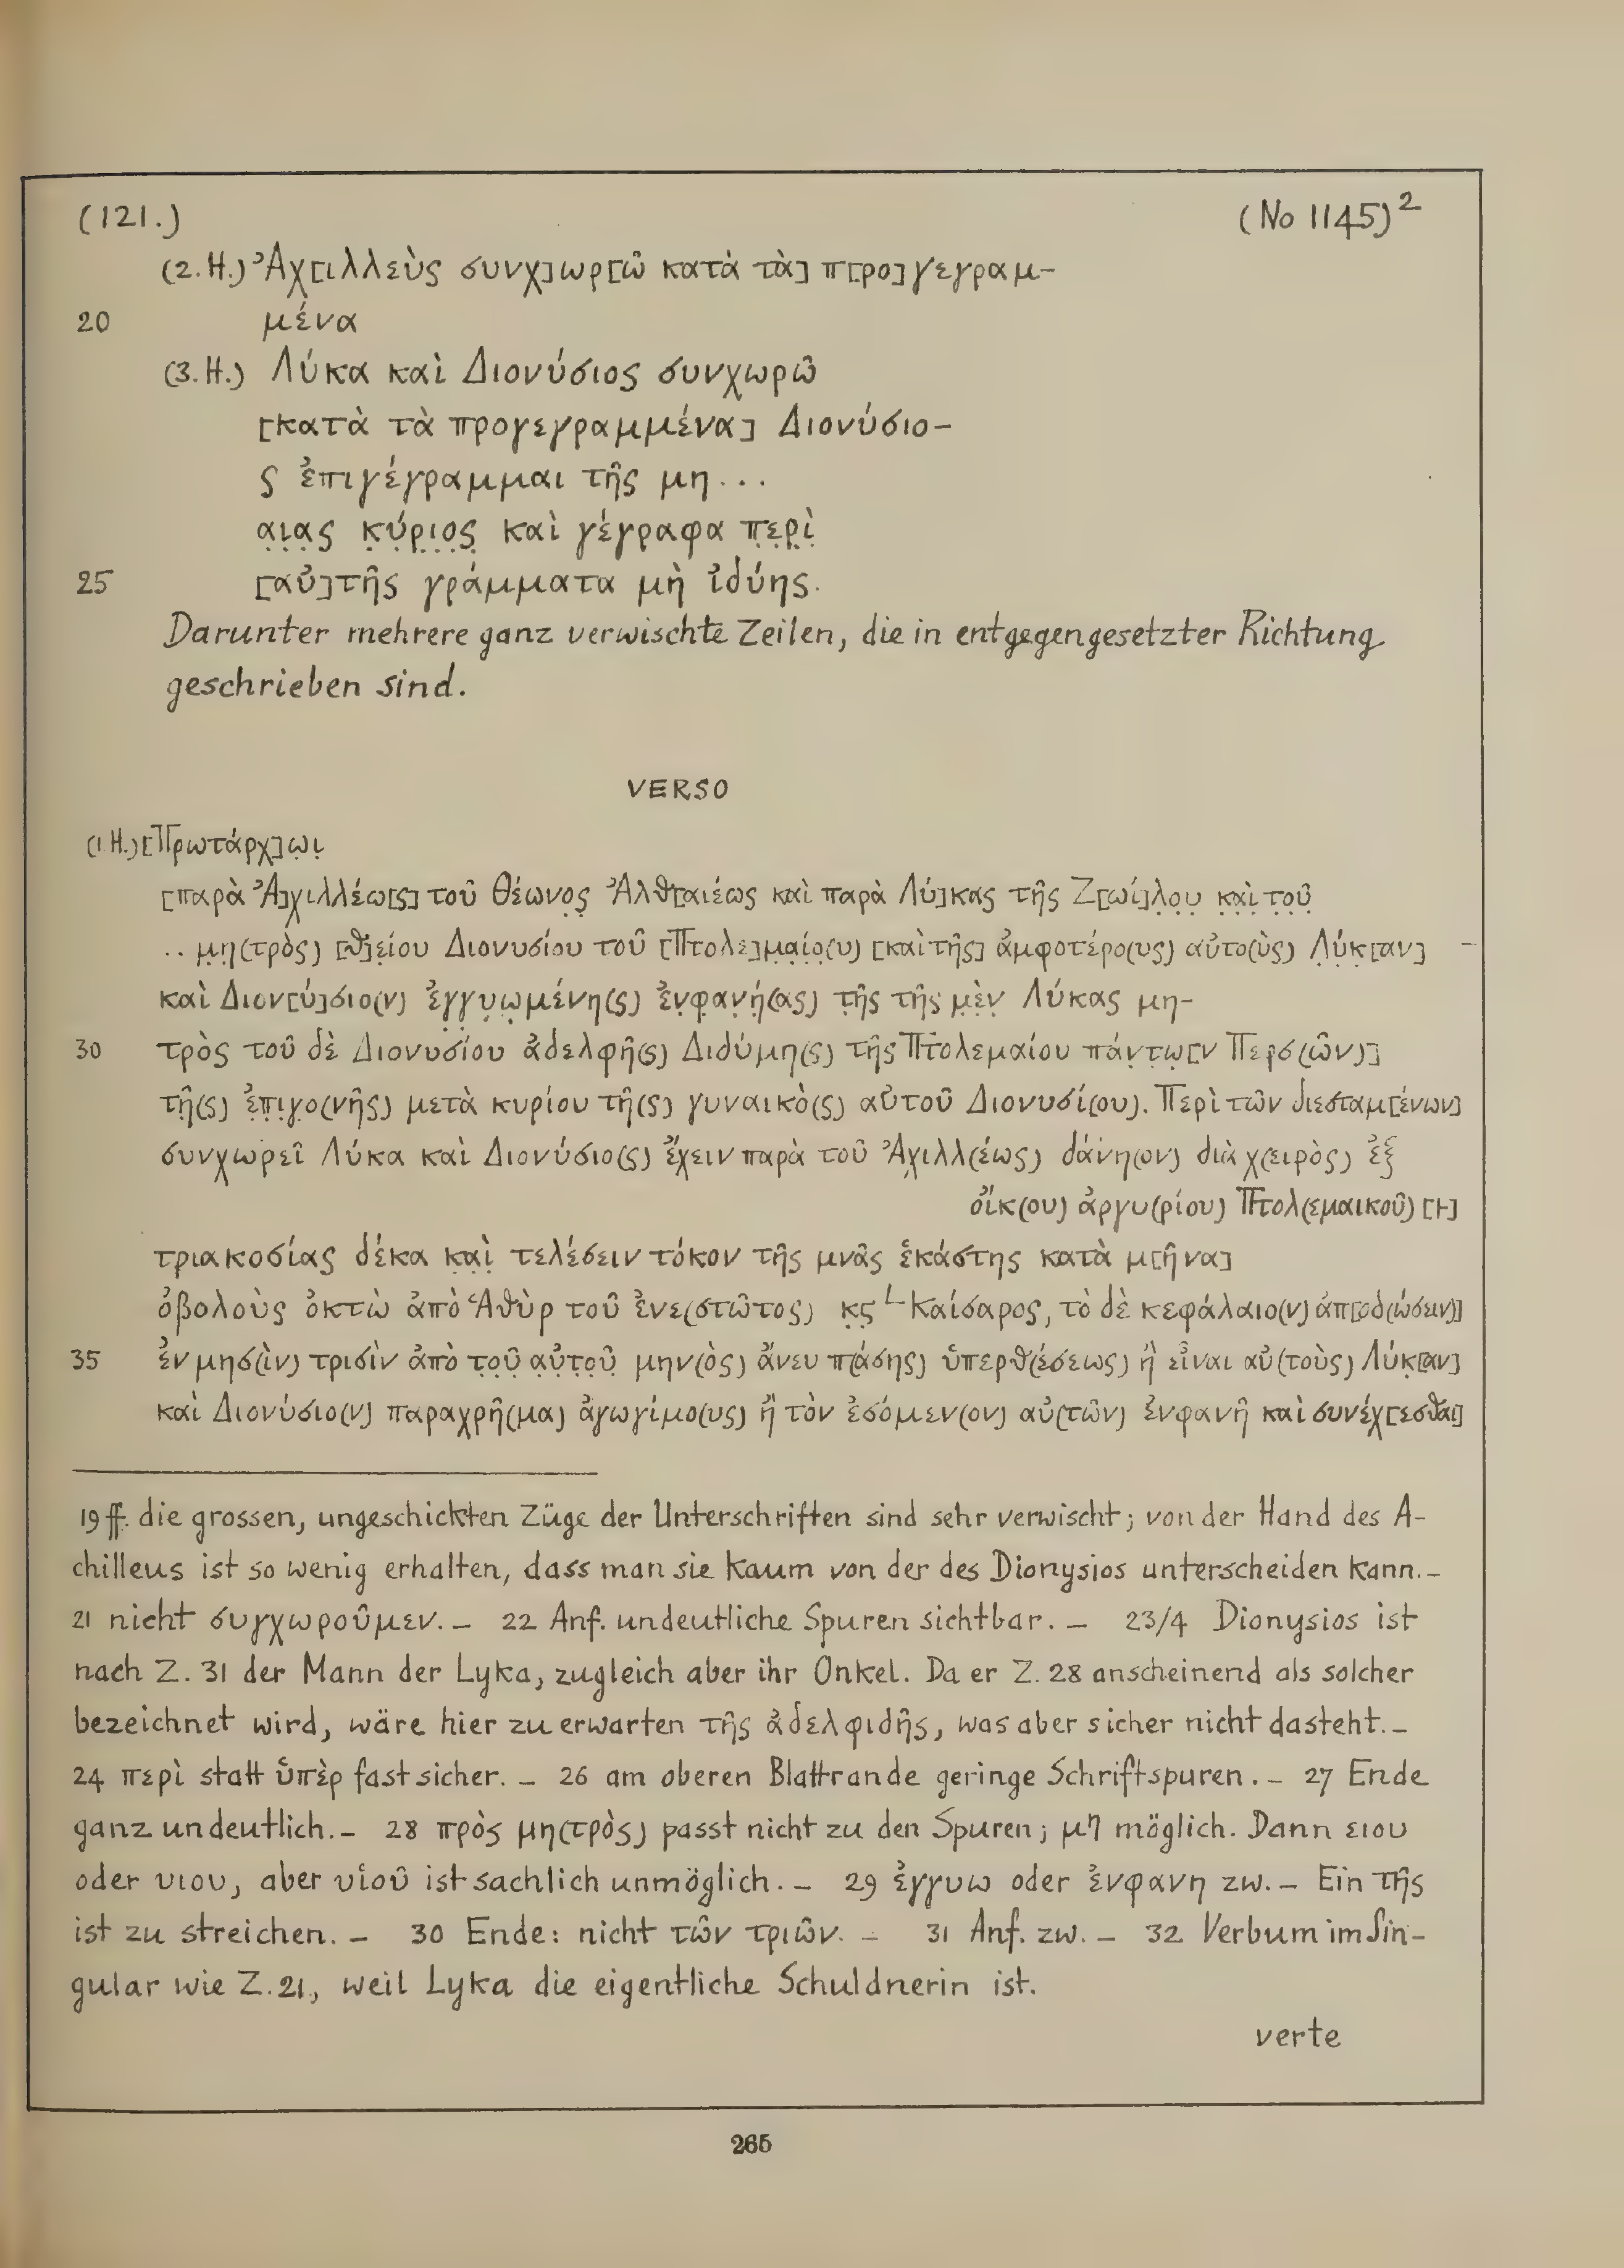 (121.) (No 1145)²
(2.H.) Ἀχ[ιλλεὺς συνχ]ωρ[ῶ κατὰ τὰ] π[ρο]γεγραμ-
20 μένα
(3.H.) Λύκα καὶ Διονύσιος συνχωρῶ
[κατὰ τὰ προγεγραμμένα] Διονύσιο-
ς ἐπιγέγραμμαι τῆς μη...
α̣ι̣α̣ς κ̣ύ̣ρ̣ι̣ο̣ς̣ καὶ γέγραφα π̣ε̣ρ̣ὶ̣
25 [αὐ]τῆς γράμματα μὴ ἰδύης.
Darunter mehrere ganz verwischte Zeilen, die in entgegengesetzter Richtung
geschrieben sind.
VERSO
(1.H.) [Πρωτάρχ]ω̣ι̣
[παρὰ Ἀ]χιλλέω[ς] τοῦ Θέωνο̣ς̣ Ἀλθ[αιέως καὶ παρὰ Λύ]κας τῆς Ζ[ωί]λ̣ο̣υ̣ κ̣α̣ὶ̣ τ̣ο̣ῦ̣
.. μ̣η̣(τρὸς) [θ]ε̣ίου Διονυσίου τοῦ [Πτολε]μ̣α̣ίο̣(υ) [καὶ τῆς] ἀμφοτέρο(υς) αὐτο(ὺς) Λ̣ύ̣κ̣[αν] –
καὶ Διον[ύ]σιο(ν) ἐγ̣γ̣υ̣ω̣μένη(ς) ἐν̣φ̣α̣ν̣ή̣(ας) τ̣ῆ̣ς τῆς̣ μ̣ὲ̣ν̣ Λύκας μη-
30 τρὸς τοῦ δὲ Διονυσίου ἀδελφῆ(ς) Διδύμ̣η(ς) τῆς Πτολεμαίου πάν̣τ̣ω̣[ν Περσ(ῶν)]
τ̣ῆ̣(ς) ἐ̣π̣ι̣γ̣ο(νῆς) μετὰ κυρίου τῆ(ς) γυναικὸ(ς) αὐτοῦ Διονυσί(ου). Περὶ τῶν διεσταμ[ένων]
συνχωρεῖ Λύκα καὶ Διονύσιο(ς) ἔχειν παρὰ τοῦ Ἀχιλλ(έως) δάνη(ον) διὰ χ(ειρὸς) ἐξ
οἴκ(ου) ἀργυ(ρίου) Πτολ(εμαικοῦ) [⊢]
τριακοσίας δέκα κ̣α̣ὶ̣ τελέσειν τόκον τῆς μνᾶς ἑκάστης κατὰ μ[ῆνα]
ὀβολοὺς ὀκτὼ ἀπὸ Ἁθὺρ τοῦ ἐνε(στῶτος) κ̣ς̣ └ Καίσαρος, τὸ δὲ κεφάλαιο(ν) ἀπ[οδ(ώσειν)]
35 ἐν μησ(ὶν) τρισὶν ἀπὸ τ̣ο̣ῦ̣ α̣ὐ̣τ̣ο̣ῦ̣ μην(ὸς) ἄνευ π(άσης) ὑπερθ(έσεως) ἢ εἶναι αὐ(τοὺς) Λύκ̣[αν]
καὶ Διονύσιο(ν) παραχρῆ(μα) ἀγωγίμο(υς) ἢ τὸν ἐσόμεν(ον) αὐ(τῶν) ἐνφανῆ καὶ συνέχ[εσθαι]
19 ff. die grossen, ungeschickten Züge der Unterschriften sind sehr verwischt; von der Hand des A-
chilleus ist so wenig erhalten, dass man sie kaum von der des Dionysios unterscheiden kann. –
21 nicht συγχωροῦμεν. – 22 Anf. undeutliche Spuren sichtbar. – 23/4 Dionysios ist
nach Z. 31 der Mann der Lyka, zugleich aber ihr Onkel. Da er Z. 28 anscheinend als solcher
bezeichnet wird, wäre hier zu erwarten τῆς ἀδελφιδῆς, was aber sicher nicht dasteht. –
24 περὶ statt ὑπὲρ fast sicher. – 26 am oberen Blattrande geringe Schriftspuren. – 27 Ende
ganz undeutlich. – 28 πρὸς μη(τρὸς) passt nicht zu den Spuren; μη möglich. Dann ειου
oder υιου, aber υἱοῦ ist sachlich unmöglich. – 29 ἐγγυω oder ἐνφανη zw. – Ein τῆς
ist zu streichen. – 30 Ende: nicht τῶν τριῶν. – 31 Anf. zw. – 32 Verbum im Sin-
gular wie Z. 21, weil Lyka die eigentliche Schuldnerin ist.
verte
265